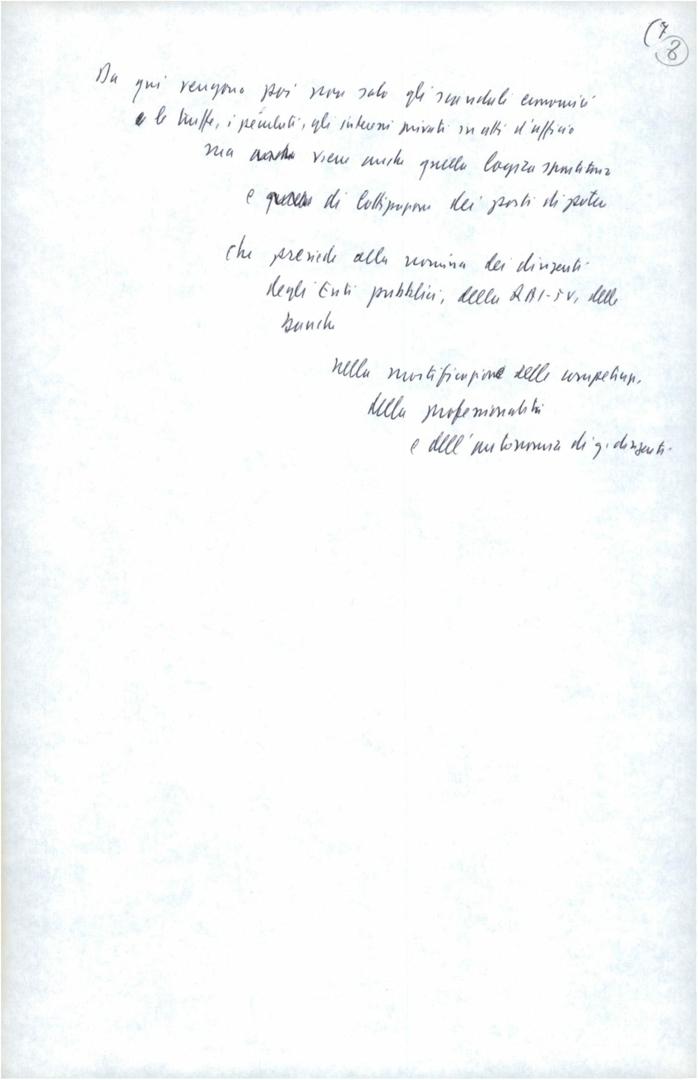 (7
8
Da qui vengono poi non solo gli scandali economici
e le truffe, i peculati, gli interessi privati in atti d'ufficio
ma viene anche quella logica spartitoria
e di lottizzazione dei posti di potere
che presiede alla nomina dei dirigenti
degli Enti pubblici, della RAI-TV, delle
banche
nella mortificazione delle competenze,
della professionalità
e dell'autonomia di q. dirigenti.